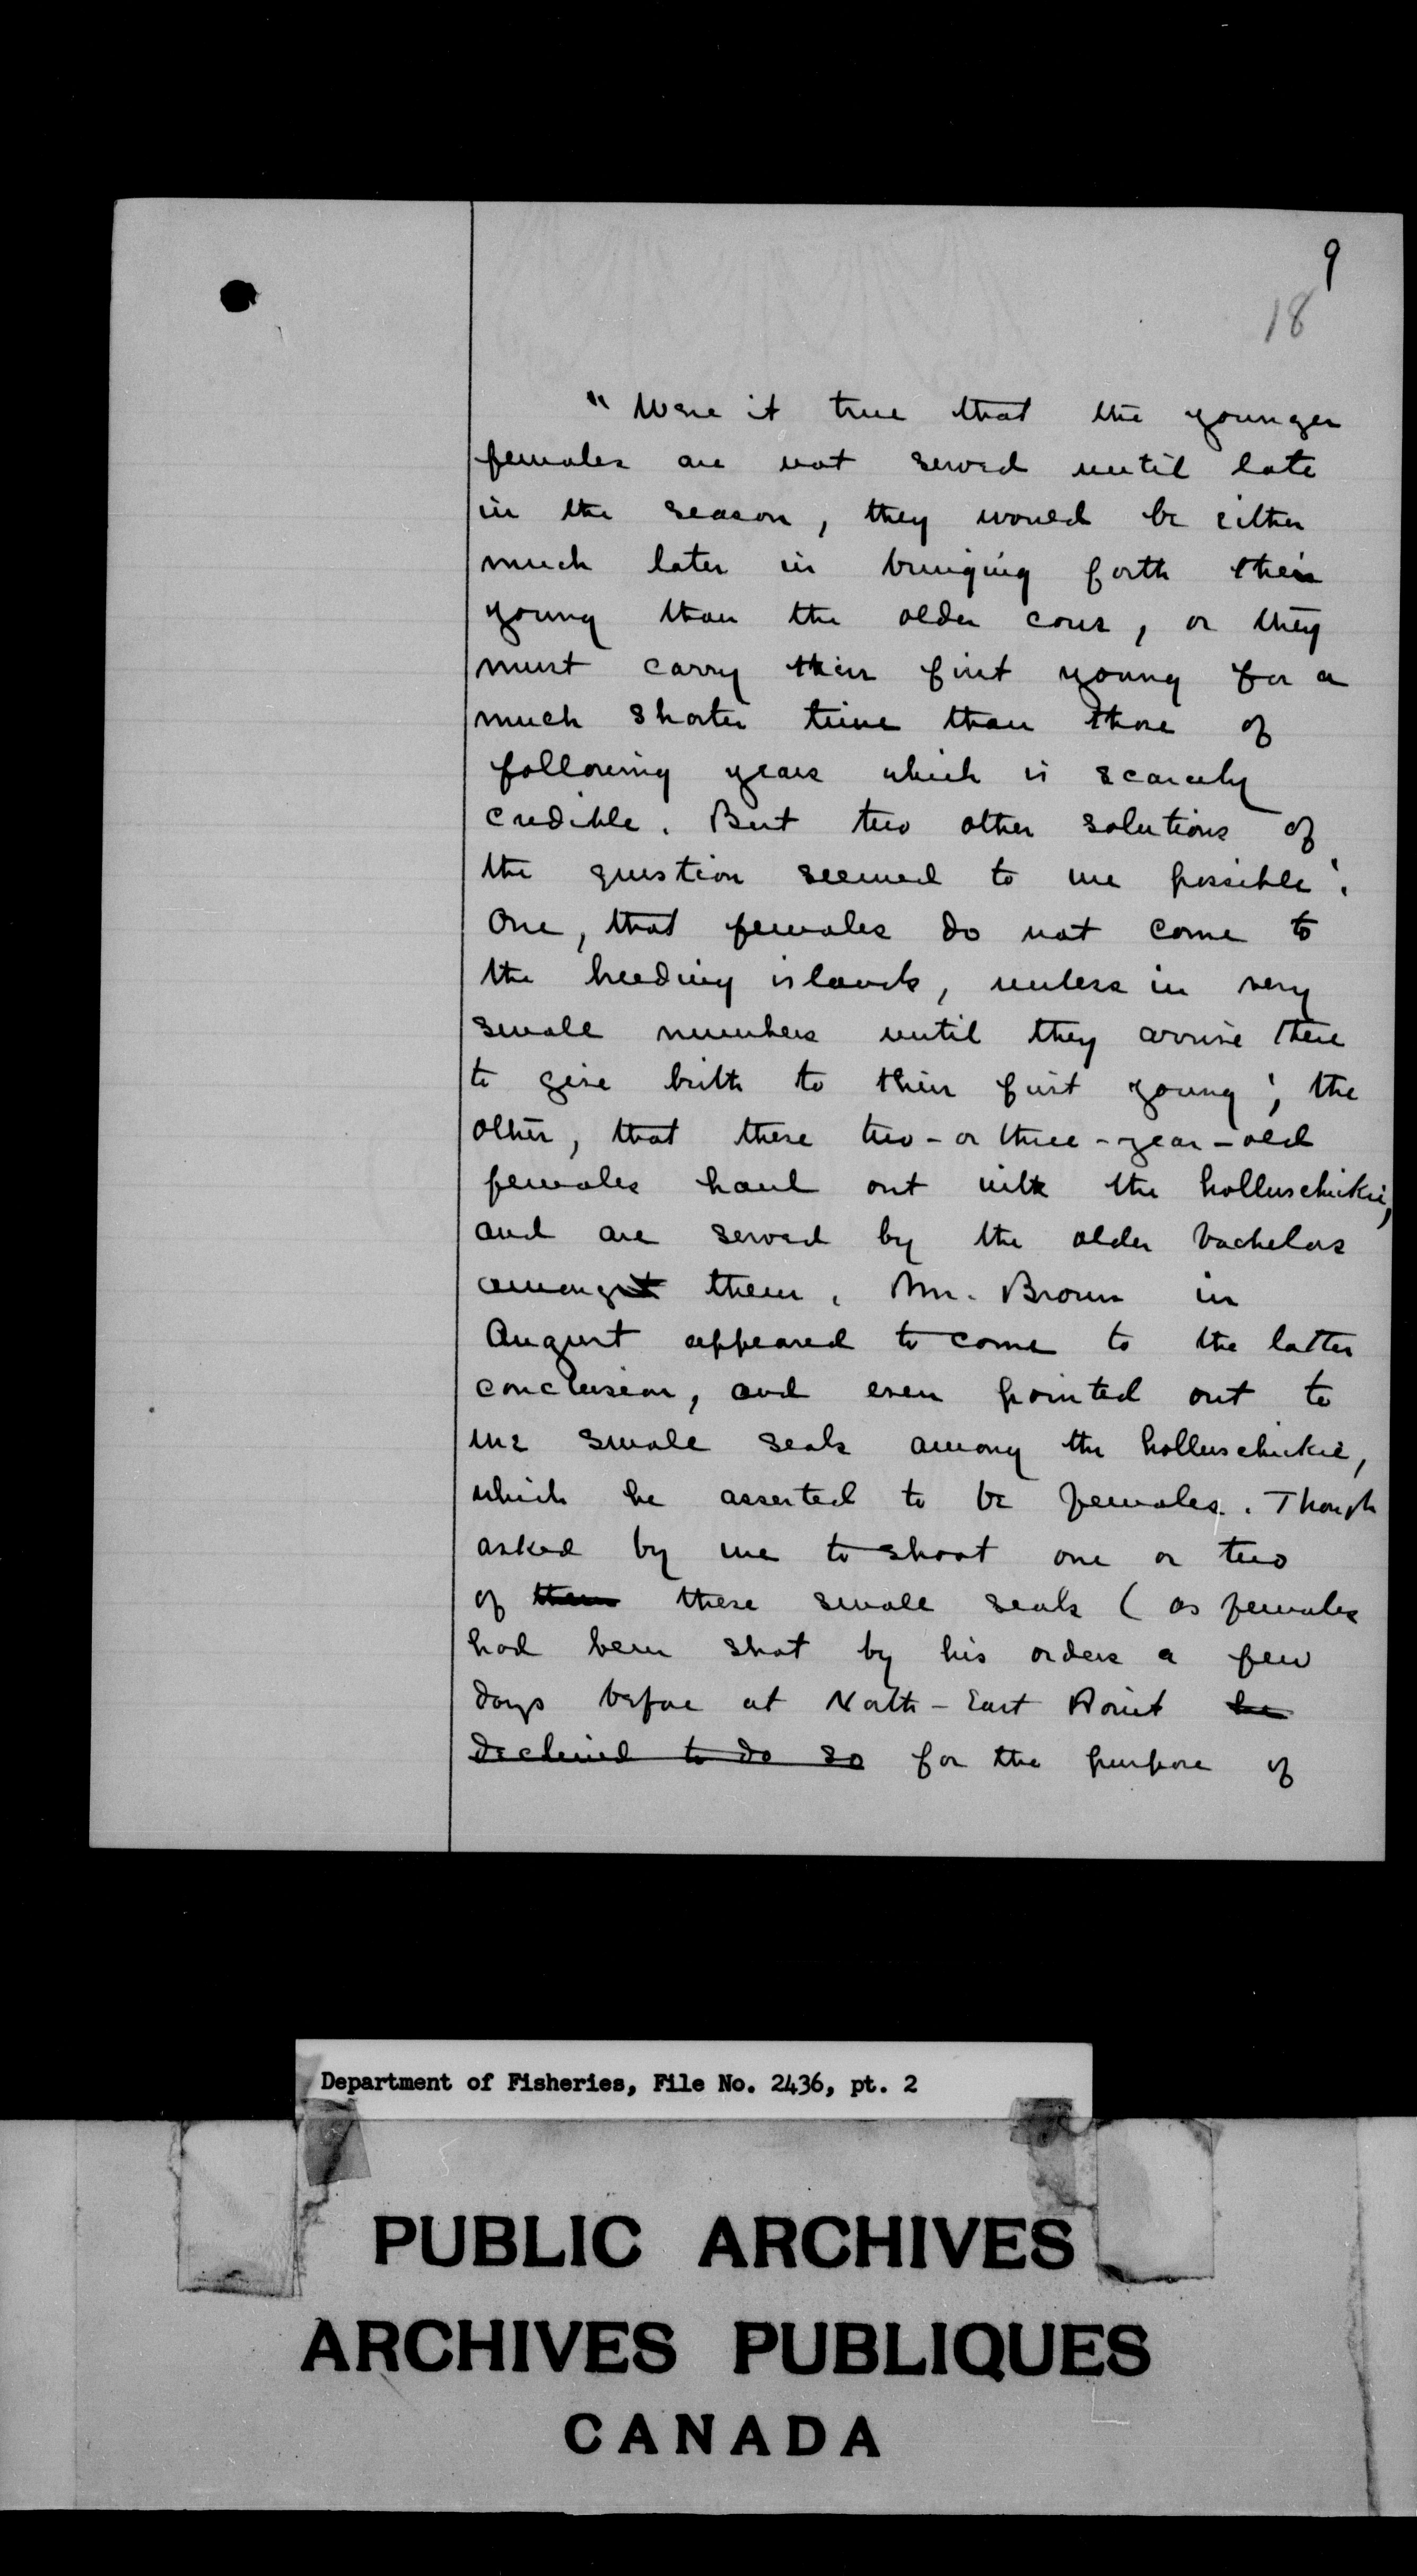 9
18
" Were it true that the younger
females are not served until late
in the season, they would be either
much later in bringing forth their
young than the older cows, or they
must carry their first young for a
much shorter time than those of
following years which is scarcely
credible. But two other solutions of
the question seemed to me possible:
One, that females do not come to
the breeding islands, unless in very
small numbers until they arrive there
to give birth to their first young; the
other, that these two-or three-year-old
females haul out with the holluschickie,
and are served by the older bachelors
amongst them. Mr. Brown in
August appeared to come to the latter
conclusion, and even pointed out to
me small seals among the holluschickie,
which he asserted to be females. Though
asked by me to shoot one or two
of them these small seals ( as females
had been shot by his orders a few
days before at North-East Point he
declined to do so for the purpose of
Department of Fisheries, File No. 2436, pt. 2
PUBLIC ARCHIVES
ARCHIVES PUBLIQUES
CANADA